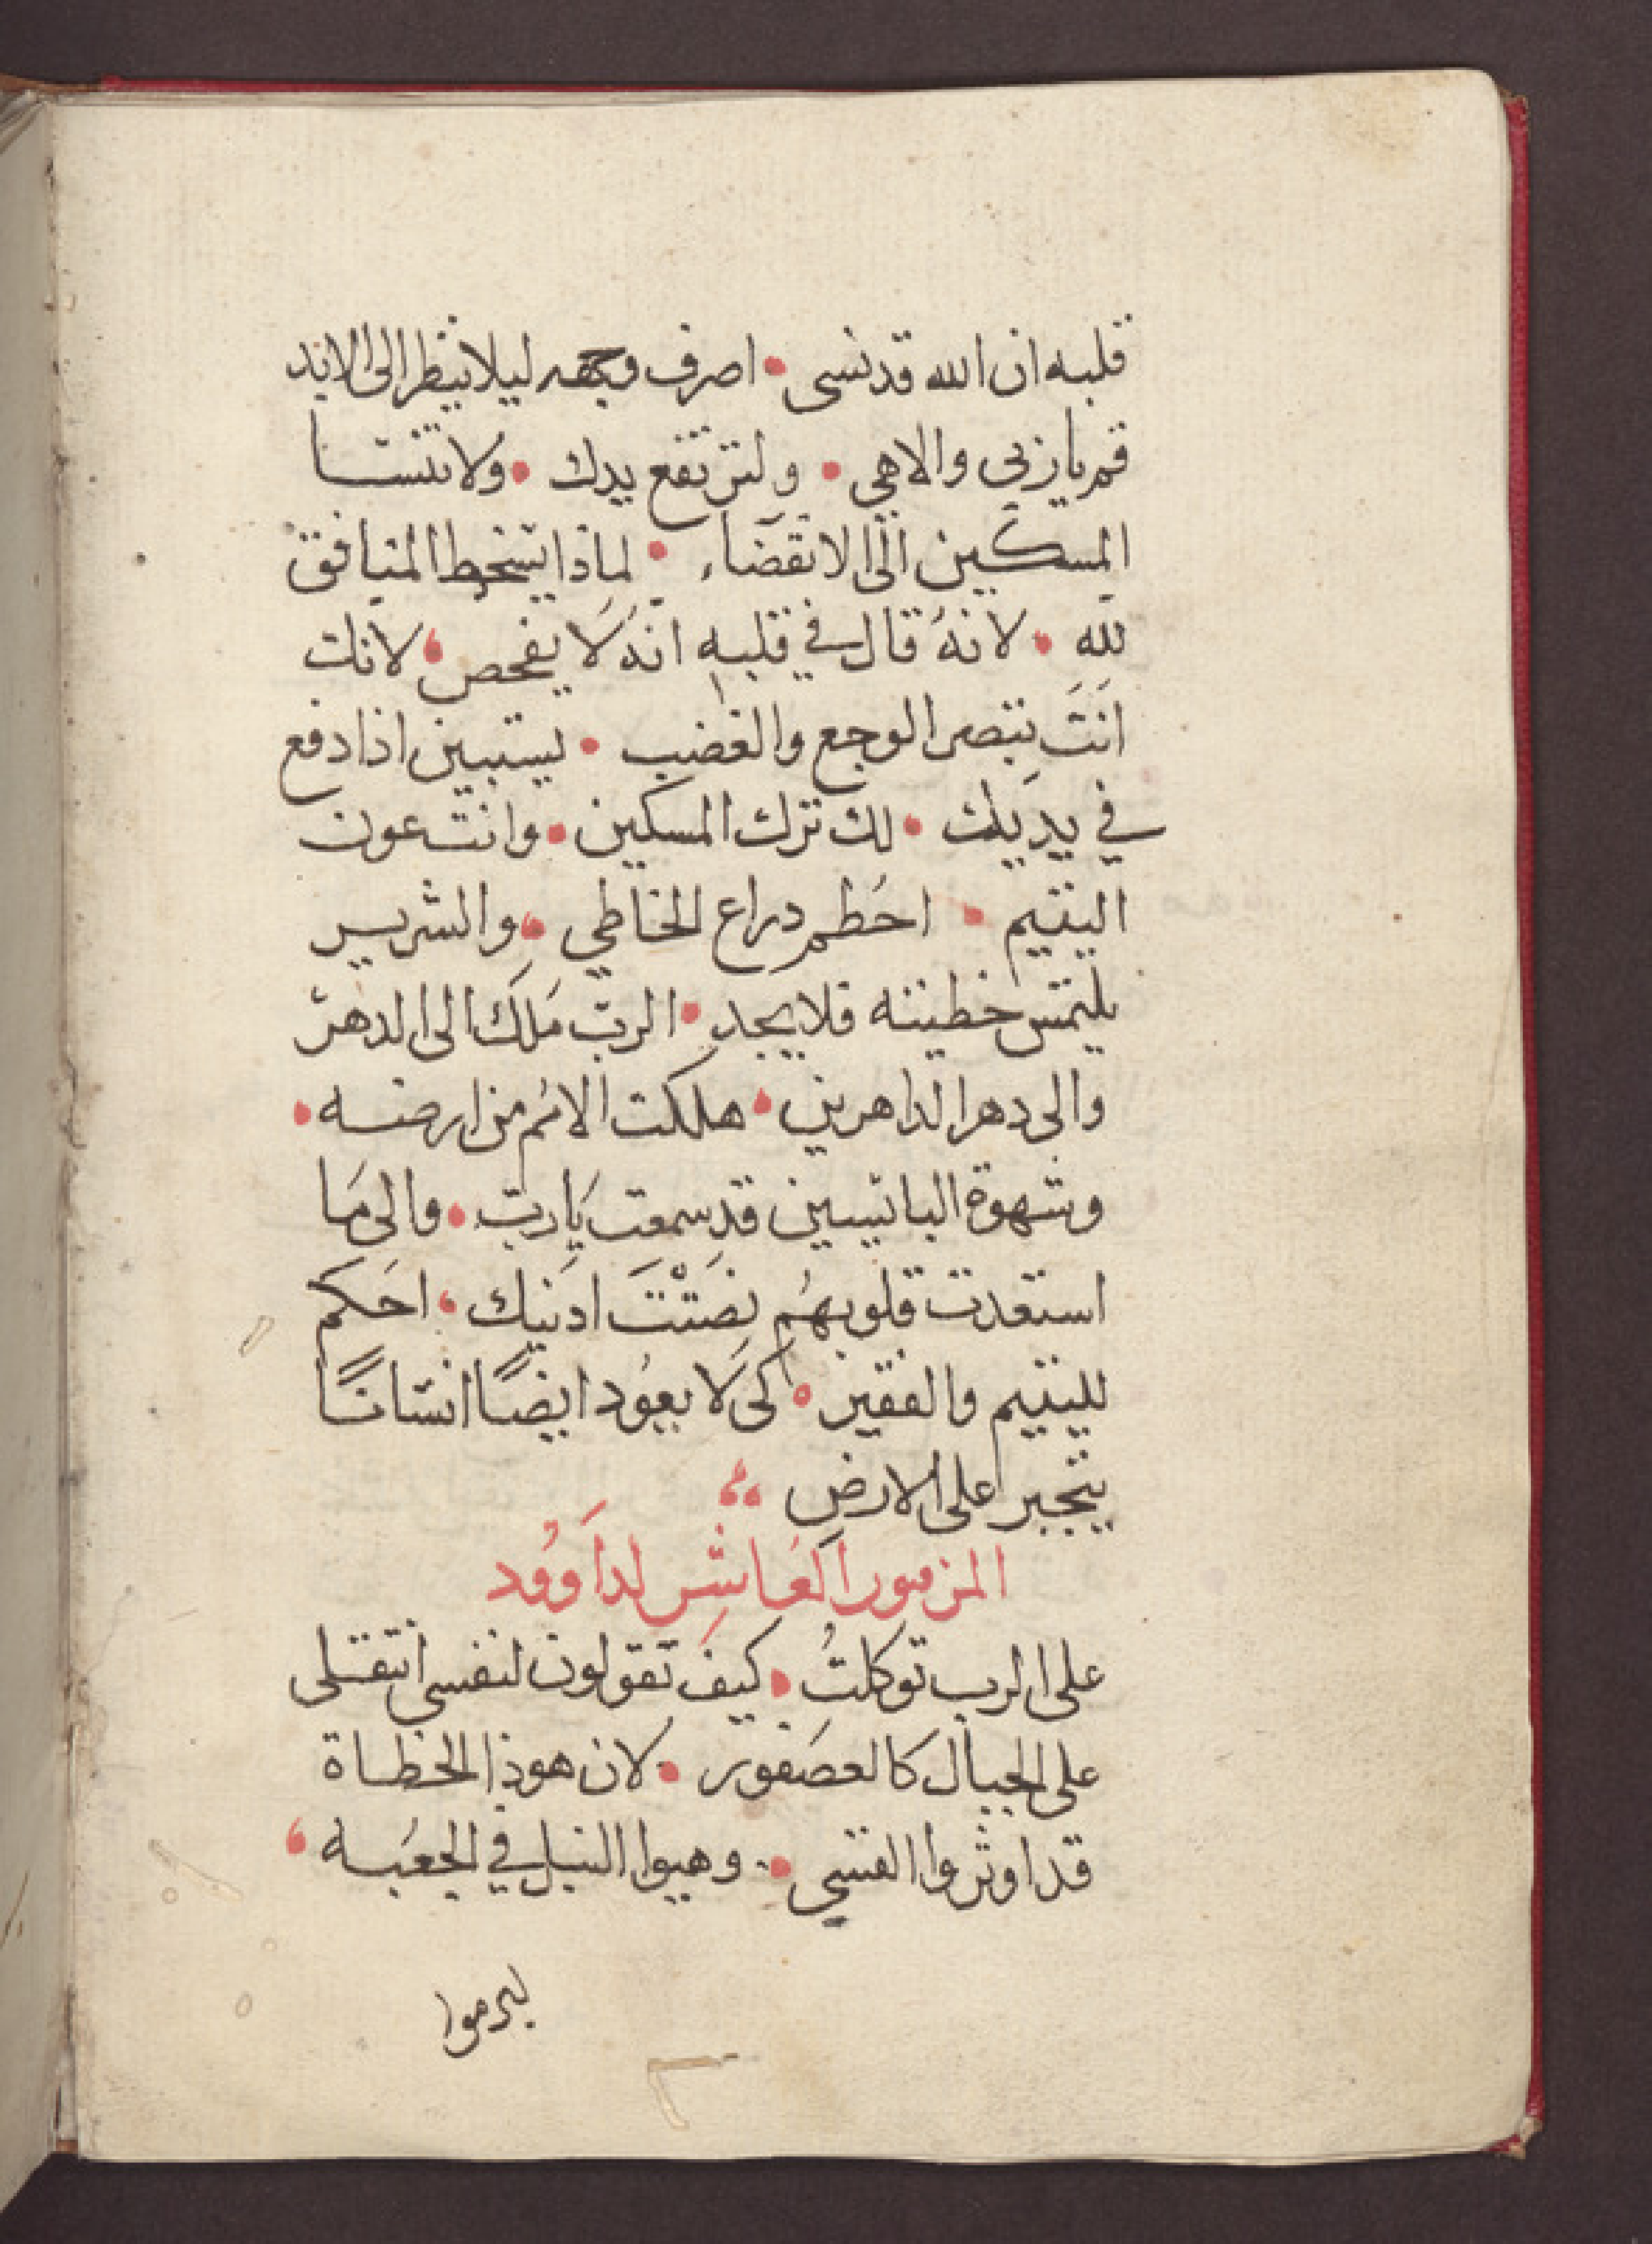 قلبه ان الله قد نسى • اصرف وجهه ليلا ينظر الى الابد
قم يا ربي والاهي • ولترتفع يدك • ولا تنسا
المسكين الى الانقضاء • لماذا يسخط المنافق
لله • لانهُ قال في قلبه انهُ لا يفحص • لانك
انتَ تبصر الوجع والغضب • ليستبين اذا دفع
في يديك • لك ترك المسكين • وانت عون
اليتيم • احُطم دراع الخاطي • والشرير
يلتمس خطيته فلا يجد • الربّ مَلَك الى الدهر
والى دهر الداهرين • هلكت الامُم من ارضه •
وشهوة البائيسين قد سمعت يَا ربّ • والى مَا
استعدت قلوبهُم نصَتْتَ ادنيك • احَكم
لليتيم والفقير • كى لَا يعوُد ايضًا انسَانًا
يتجبر على الارض
المزمور العَاشِر لداَووُد
على الرب توكلتُ • كيفَ تقولون لنفسى انتقلى
على الجبال كالعصَفور • لان هوذا الخطاة
قد اوتروا القسي • وهيوا النبل في الجعبَه
ليرموا